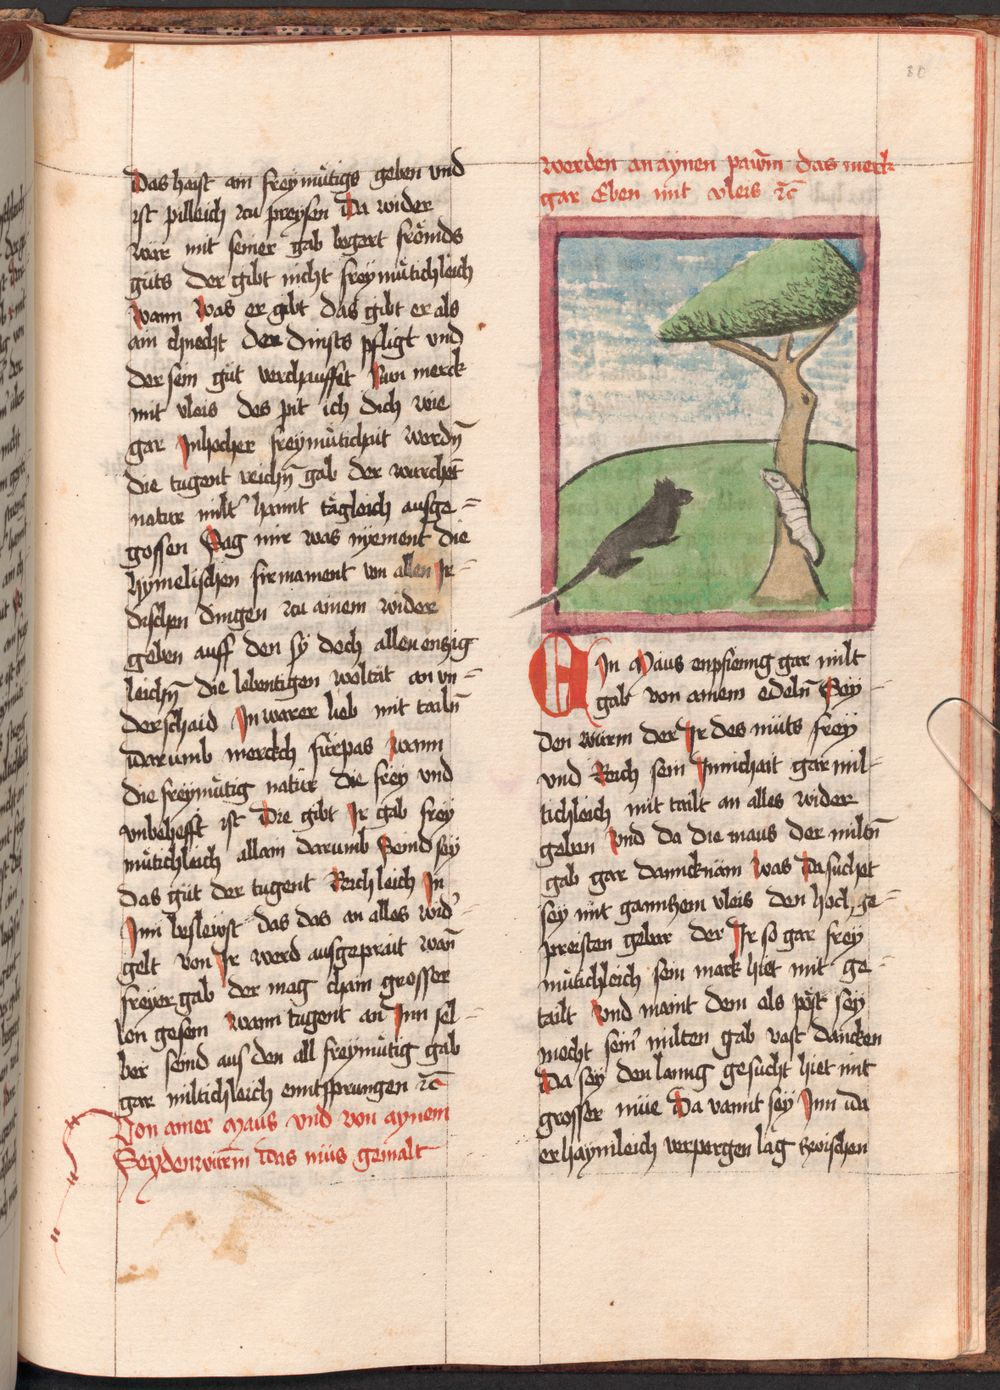 Das haist ain freymütigs geben vnd
ist pilleich zu preysen Da wider
wer mit seiner gab begert frömds
güts der gibt nicht freymütichleich
Wann was er gibt das gibt er als
ain chnecht der dinsts pfligt vnd
der sein güt verchauffet Nun merck
mit vleis des pit ich dich wie
gar Inhocher freymütichait werdn̄
die tugent reichn̄ gab der wurchēt
natur milt hannt tägleich ausge=
gossen Sag mir was nyement die
hymelischen firmament von allen Ir=
dischen dingen zu ainem wider
geben auff den sy doch allenenzig
leichn̄ die lebentigen woltät an vn=
derschaid In warer lieb mit tailn̄
Darumb merckch fürpas wann
die freymütig natur die frey vnd
vnbehefft ist Die gibt Ir gab frey
mütichleich allain darumb Seind sey
das güt der tugent Reichleich In
Inn besleust das das an alles wid=
gelt von Ir werd ausgeprait wān
freyer gab der mag chain grosser
lon gesein wann tugent an Inn sel=
ber seind aus den all freymütig gab
gar miltichleich enntsprungen ꝛc̄
Von ainer Maus vnd von aynem
Seydenwurm̄ das müs gemalt
80
werden an aynen pawm̄ das merk
gar Eben mit vleis ꝛc̄
EIn Maus enpfienng gar milt
gab von ainem edeln̄ Sey=
den wurm der Ir des müts frey
vnd Reich sein Innichait gar mil=
tichleich mit tailt an alles wider
geben Vnd da die maus der miltn̄
gab gar danncknäm was Da suchet
sey mit ganntzem vleis den hoch ge=
preisten geber der Ir so gar frey
mütichleich sein marck hiet mit ge=
tailt Vnd maint dem als pöst sey
mocht seinr milten gab vast dancken
Da sey den lanng gesucht hiet mit
grosser müe Da vannt sey Inn da
er haymleich verporgen lag zwischen